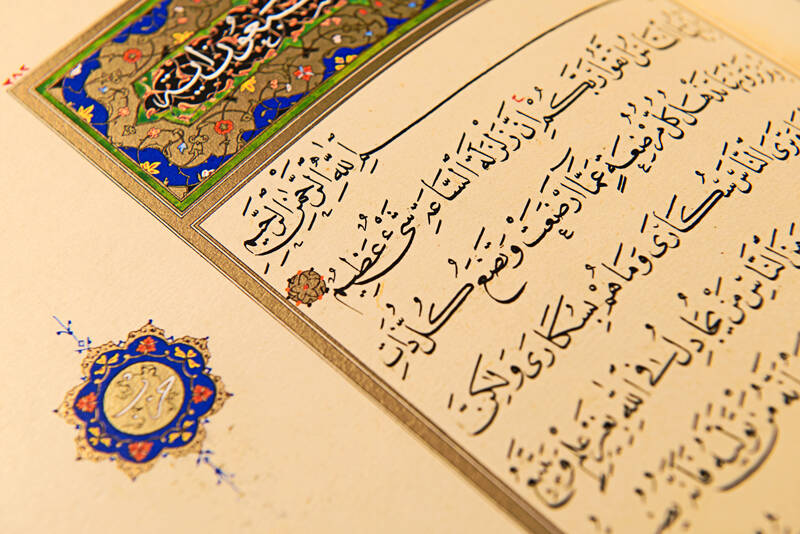 ٣٨٢
سبعون اية
بِسْمِ اللّٰهِ الرَّحْمٰنِ الرَّحِيمِ
النَّاسُ اتَّقُوا رَبَّكُمْ اِنَّ زَلْزَلَةَ السَّاعَةِ شَيْءٌ عَظِيمٌ
تَرَوْنَهَا تَذْهَلُ كُلُّ مُرْضِعَةٍ عَمَّا اَرْضَعَتْ وَتَضَعُ كُلُّ ذَاتِ
وَتَرَى النَّاسَ سُكَارٰى وَمَا هُمْ بِسُكَارٰى وَلٰكِنَّ
مِنَ النَّاسِ مَنْ يُجَادِلُ فِي اللّٰهِ بِغَيْرِ عِلْمٍ وَيَتَّبِعُ
اَنَّهُ مَنْ تَوَلَّاهُ فَاَنَّهُ